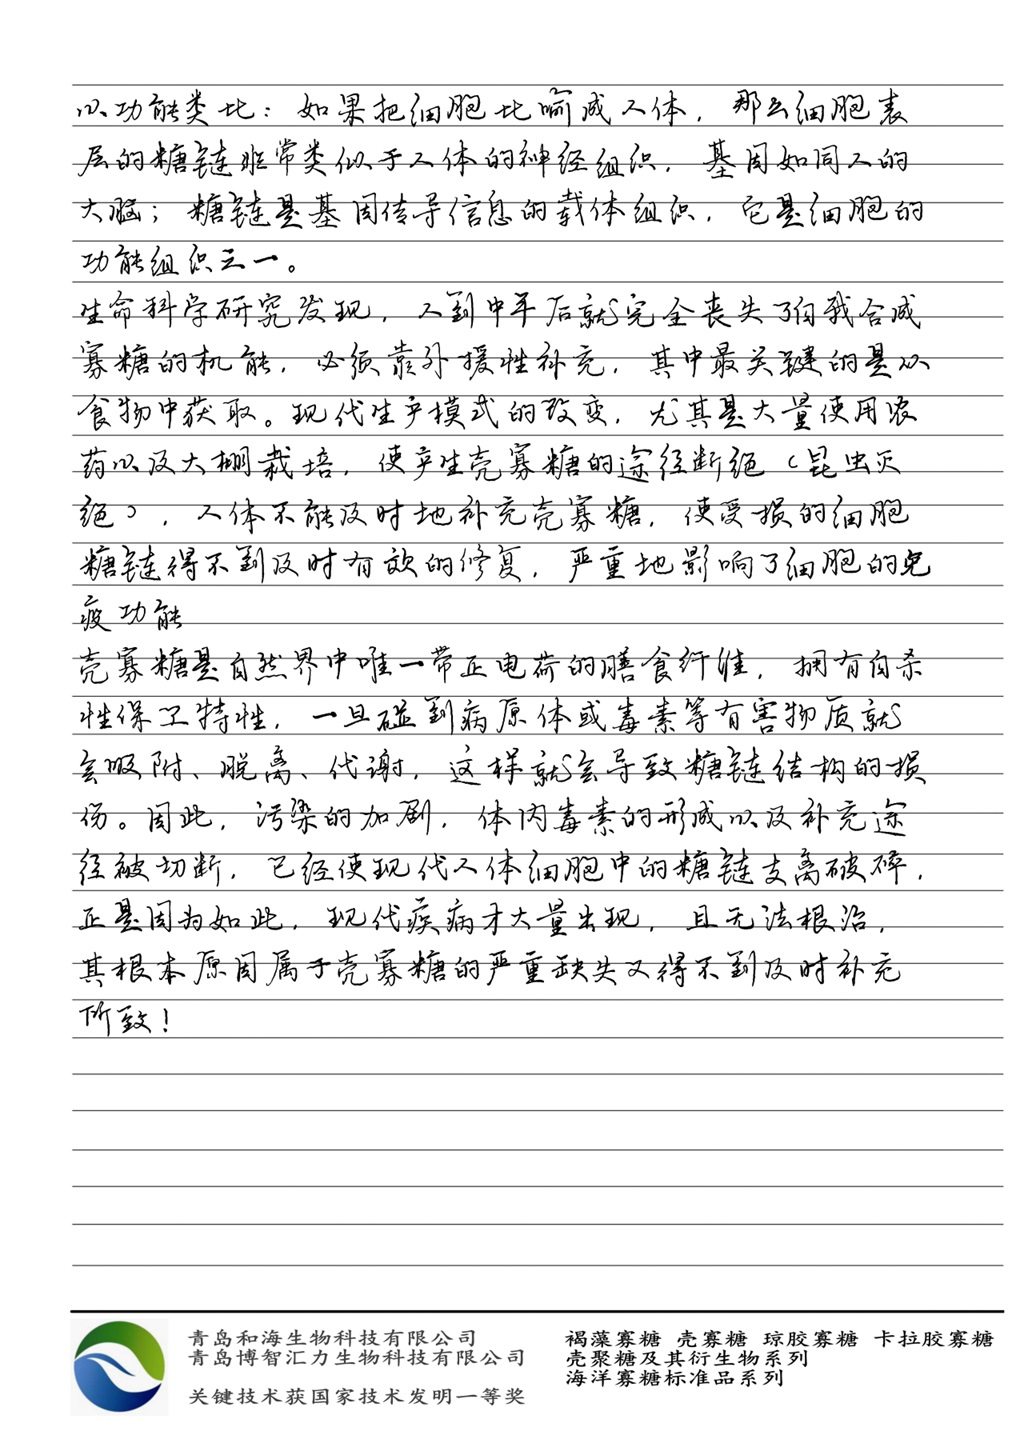 以功能类比：如果把细胞比喻成人体，那么细胞表
层的糖链非常类似于人体的神经组织，基因如同人的
大脑；糖链是基因传导信息的载体组织，它是细胞的
功能组织之一。
生命科学研究发现，人到中年后就完全丧失了自我合成
寡糖的机能，必须靠外援性补充，其中最关键的是从
食物中获取。现代生产模式的改变，尤其是大量使用农
药以及大棚栽培，使产生壳寡糖的途径断绝（昆虫灭
绝），人体不能及时地补充壳寡糖，使受损的细胞
糖链得不到及时有效的修复，严重地影响了细胞的免
疫功能
壳寡糖是自然界中唯一带正电荷的膳食纤维，拥有自杀
性保卫特性，一旦碰到病原体或毒素等有害物质就
会吸附、脱离、代谢，这样就会导致糖链结构的损
伤。因此，污染的加剧，体内毒素的形成以及补充途
径被切断，已经使现代人体细胞中的糖链支离破碎，
正是因为如此，现代疾病才大量出现，且无法根治，
其根本原因属于壳寡糖的严重缺失又得不到及时补充
所致！
青岛和海生物科技有限公司
青岛博智汇力生物科技有限公司
关键技术获国家技术发明一等奖
褐藻寡糖 壳寡糖 琼胶寡糖 卡拉胶寡糖
壳聚糖及其衍生物系列
海洋寡糖标准品系列